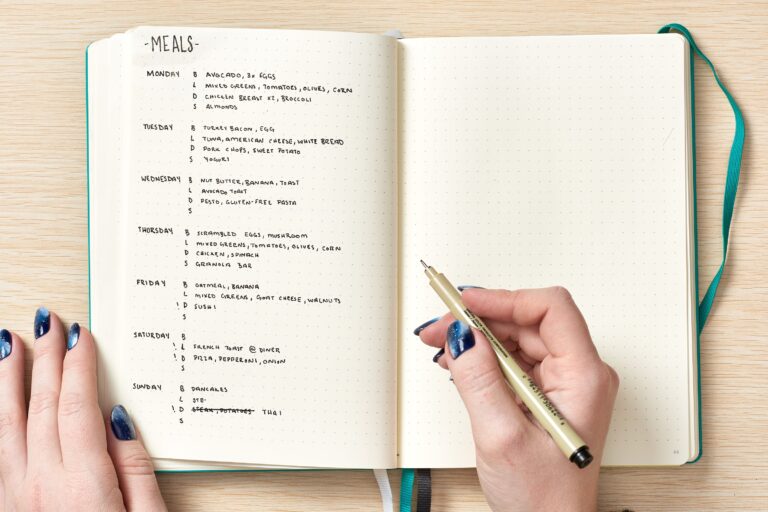 -MEALS-
MONDAY B AVOCADO, 3x EGGS
L MIXED GREENS, TOMATOES, OLIVES, CORN
D CHICKEN BREAST X2, BROCCOLI
S ALMONDS
TUESDAY B TURKEY BACON, EGG
L TUNA, AMERICAN CHEESE, WHITE BREAD
D PORK CHOPS, SWEET POTATO
S YOGURT
WEDNESDAY B NUT BUTTER, BANANA, TOAST
L AVOCADO TOAST
D PESTO, GLUTEN-FREE PASTA
S
THURSDAY B SCRAMBLED EGGS, MUSHROOM
L MIXED GREENS, TOMATOES, OLIVES, CORN
D CHICKEN, SPINACH
S GRANOLA BAR
FRIDAY B OATMEAL, BANANA
L MIXED GREENS, GOAT CHEESE, WALNUTS
! D SUSHI
S
SATURDAY B
! L FRENCH TOAST @ DINER
! D PIZZA, PEPPERONI, ONION
S
SUNDAY B PANCAKES
L
! D STEAK, POTATOES THAI
S